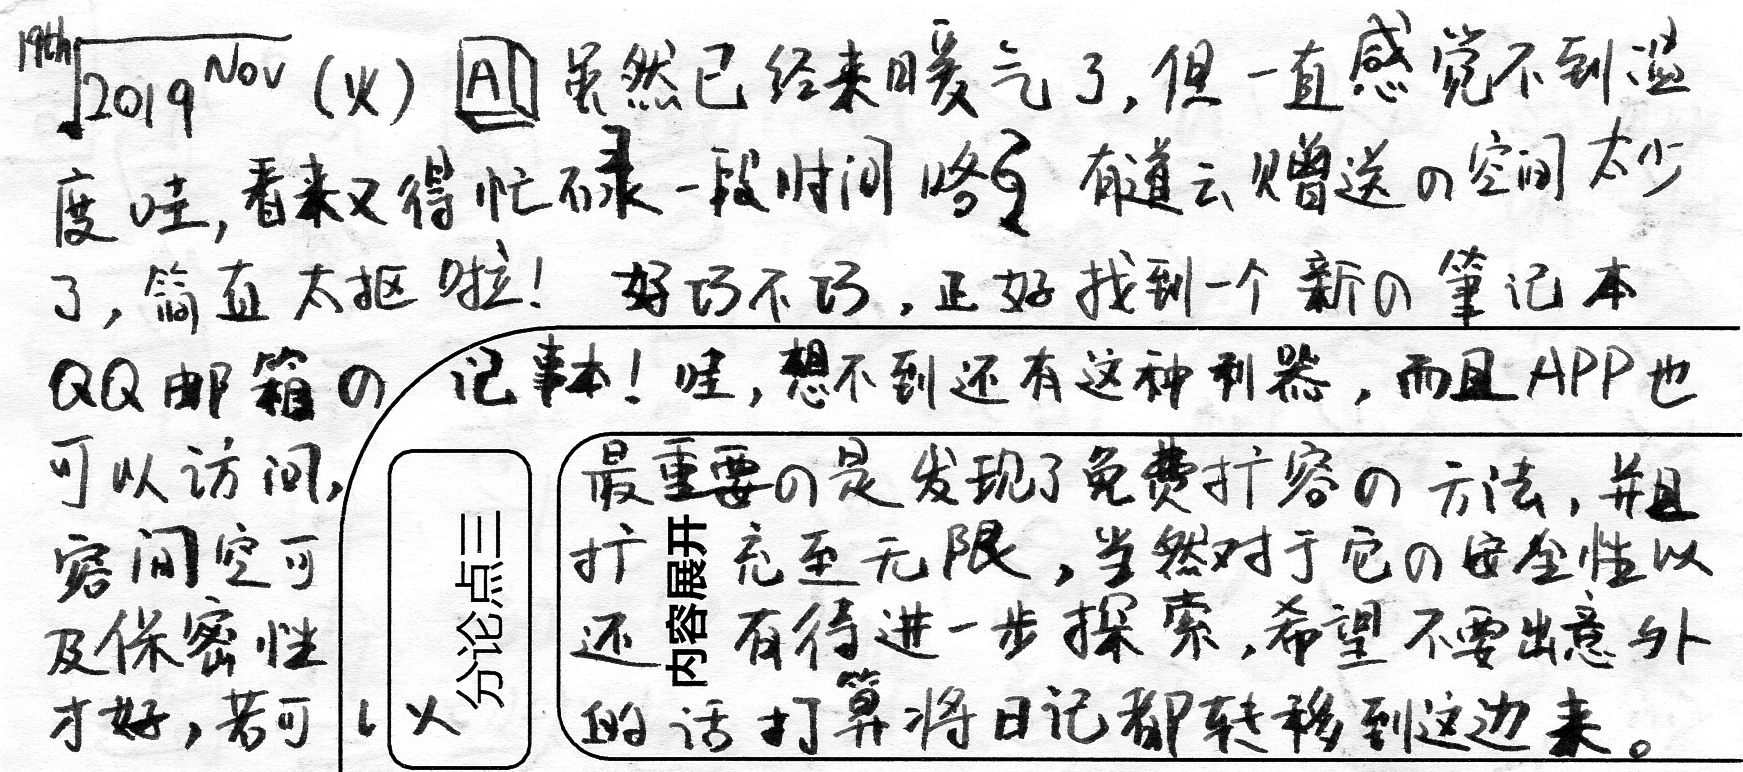 19th 2019 Nov (火) A 虽然已经来暖气了,但一直感觉不到温
度哇,看来又得忙碌一段时间咯 有道云赠送の空间太少
了,简直太抠啦! 好巧不巧,正好找到一个新の筆记本
QQ邮箱の记事本!哇,想不到还有这种利器,而且APP也
可以访问,最重要の是发现了免费扩容の方法,并且
容间空可扩充至无限,当然对于它の安全性以
及保密性还有待进一步探索,希望不要出意外
才好,若可以的话打算将日记都转移到这边来。
分论点三
内容展开